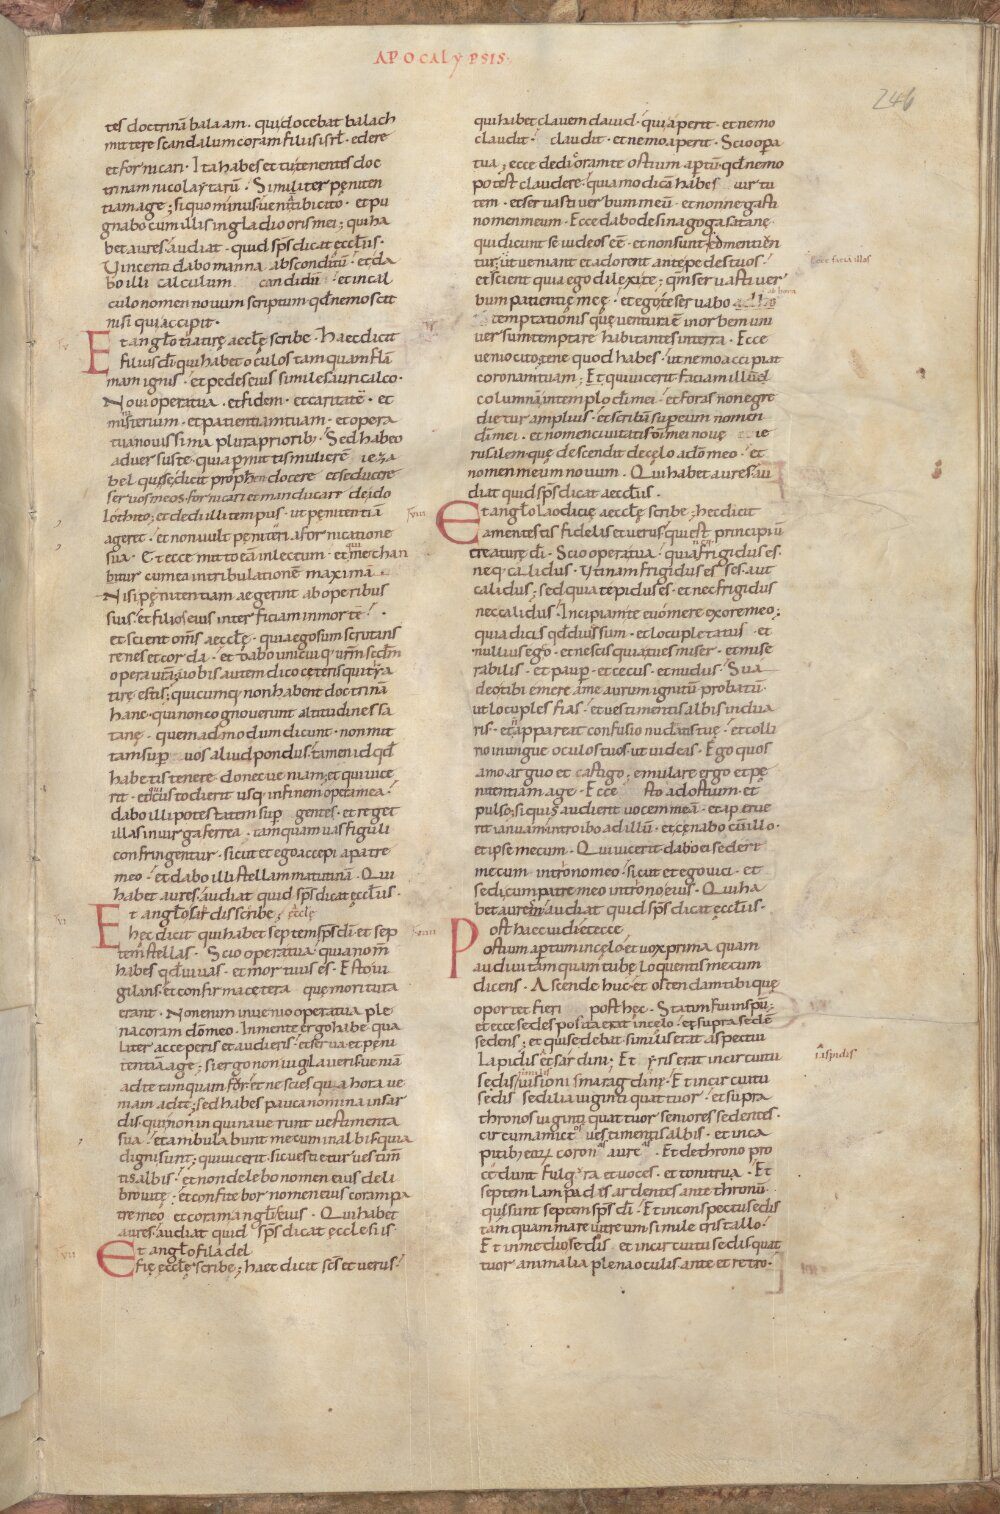 APOCALYPSIS
246
tes doctrinā balaam · qui docebat balach
mittere scandalum coram filiis isrł · edere
et fornicari · Ita habes et tu tenentes doc
trinam nicolaytarū · Similiter pęniten
tiam age ; si quo minus ueniā tibi cito · et pu
gnabo cum illis in gladio oris mei ; qui ha
bet aures audiat · quid sp̄s dicat ęccłiis ·
Vincenti dabo manna absconditū · et da
bo illi calculum candidū · et in cal
culo nomen nouum scriptum qđ nemo scit
nisi qui accipit ·
Et angło tiatirę aeccłę scribe · Haec dicit
filius dī qui habet oculos tamquam flā
mam ignis · et pedes eius similes auricalco ·
Noui opera tua · et fidem · et caritatē · et
misterium · et patientiam tuam · et opera
tua nouissima plura priorib; · Sed habeo
aduersus te · quia permittis mulierē ieza
bel quę se dicit prophen docere et seducere
seruos meos · fornicari et manducare de ido
lothito ; et dedi illi tempus · ut pęnitentiā
ageret · et non uult pęniteri a fornicatione
sua · Et ecce mitto eā in lectum · et qui męchan
bitur cum ea in tribulationē maximā ·
Nisi pęnitentiam aegerint ab operibus
suis · et filios eius interficiam in mortē ·
et scient om̄s aeccłę · quia ego sum scrutans
renes et corda · et dabo unicuiq; ur̄m scdm̄
opera ur̄a ; uobis autem dico ceteris qui tya
tirę estis ; quicumq; non habent doctrinā
hanc · qui non cognouerunt altitudines sa
tanę · quemadmodum dicunt · non mit
tam sup uos aliud pondus · tamen id qđ
habetis tenete donec ueniam ; et qui uice
rit · et qui custodierit usq; in finem opera mea ·
dabo illi potestatem sup gentes · et reget
illas in uirga ferrea · tamquam uas figuli
confringentur · sicut et ego accepi a patre
meo · et dabo illi stellam matutinā · Qui
habet aures · audiat quid sp̄s dicat ęccłiis ·
Et angło sardis scribe ; ęccłę
hęc dicit qui habet septem sp̄s dī · et sep
tem stellas · Scio opera tua · quia nom̄
habes qđ uiuas · et mortuus es · Esto ui
gilans · et confirma cetera quę moritura
erant · Non enim inuenio opera tua ple
na coram dōmeo · In mente ergo habe qua
liter acceperis et audieris · et serua et pęni
tentiā age ; si ergo non uigilaueris · ueniā
ad te tamquam fur · et nescies qua hora ue
niam ad te ; sed habes pauca nomina in sar
dis · qui non inquinauerunt uestimenta
sua · et ambulabunt mecum in albis · quia
digni sunt ; qui uicerit · sic uestietur uestim̄
tis albis · et non delebo nomen eius de li
bro uitę ; et confitebor nomen eius coram pa
tre meo et coram angłis eius · Qui habet
aures · audiat quid sp̄s dicat ecclesiis ·
Et angło filadel
fię ęccłę scribe ; haec dicit sc̄s et uerus ·
qui habet clauem dauid · qui aperit · et nemo
claudit · claudit · et nemo aperit · Scio opa
tua ; ecce dedi coram te ostium aptū · qđ nemo
potest claudere · quia modicā habes uirtu
tem · et seruasti uerbum meū · et non negasti
nomen meum · Ecce dabo de sinagoga satanę ·
qui dicunt se iudeos eē · et non sunt · sed mentiūn
tur ; ut ueniant et adorent ante pedes tuos ·
et scient quia ego dilexi te ; qm̄ seruasti uer
bum patientię meę · et ego te seruabo
temptationis quę uentura ē in orbem uni
uersum temptare habitantes in terra · Ecce
uenio cito · tene quod habes · ut nemo accipiat
coronam tuam ; Et qui uicerit faciam illum
columnā in templo dī mei · et foras non egre
dietur amplius · et scribā sup eum nomen
dī mei · et nomen ciuitatis dī mei nouę ie
rusalem · quę descendit de cęlo a dō meo · et
nomen meum nouum · Qui habet aures · au
diat quid sp̄s dicat aeccłiis ·
Et angło laodicię aeccłę scribe ; hęc dicit
amen testis fidelis et uerus · qui est principiū
creaturę dī · Scio opera tua · quia neq; frigidus es ·
neq; calidus · Vtinam frigidus esses · aut
calidus ; sed quia tepidus es · et nec frigidus
nec calidus · Incipiam te euomere ex ore meo ;
quia dicis qđ diues sum · et locupletatus · et
nullius ego · et nescis quia tu es miser · et mise
rabilis · et paup · et cecus · et nudus · Sua
deo tibi emere a me aurum ignitū probatū ·
ut locuples fias · et uestimentis albis indua
ris · et n̄ appareat confusio nuditatis tuę · et colli
rio inungue oculos tuos · ut uideas · Ego quos
amo arguo et castigo ; emulare ergo et pę
nitentiam age · Ecce sto ad ostium · et
pulso ; si quis audierit uocem meā · et aperue
rit ianuam · introibo ad illū · et cęnabo cū illo ·
et ipse mecum · Qui uicerit dabo ei sedere
mecum in trono meo · sicut et ego uici · et
sedi cum patre meo in trono eius · Qui ha
bet aurem audiat quid sp̄s dicat ęccłiis ·
Post haec uidi et ecce
ostium apertum in cęlo · et uox prima quam
audiui tamquam tubę loquentis mecum
dicens · Ascende huc · et ostendam tibi quę
oportet fieri post hęc · Statim fui in spū ·
et ecce sedes posita erat in cęlo · et supra sedē
sedens ; et qui sedebat similis erat aspectui
lapidis et sardini ; Et yris erat in circuitu
sedis similis uisioni smaragdinę · Et in circuitu
sedis sedilia uiginti quattuor · et supra
thronos uiginti quattuor seniores sedentes ·
circumamicti uestimentis albis · et in ca
pitib; eorū coronas aureas · Et de throno pro
cedunt fulgura et uoces · et tonitrua · Et
septem lampades ardentes ante thronū ·
qui sunt septem sp̄s dī · Et in conspectu sedis
tamquam mare uitreum simile cristallo ·
Et in medio sedis et in circuitu sedis quat
tuor animalia plena oculis · ante et retro ·
Ecce faciā illos
ab hora
iaspidis